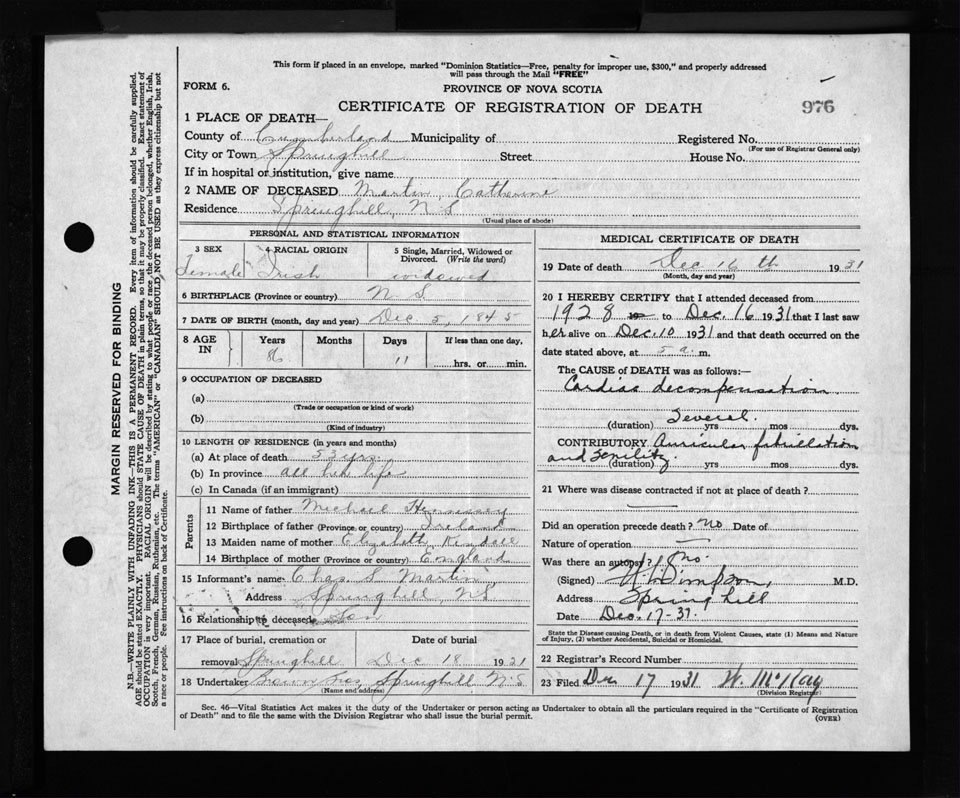 This form if placed in an envelope, marked "Dominion Statistics—Free, penalty for improper use, $300," and properly addressed
will pass through the Mail "FREE"
FORM 6.
PROVINCE OF NOVA SCOTIA
CERTIFICATE OF REGISTRATION OF DEATH
976
1 PLACE OF DEATH—
County of Cumberland Municipality of Registered No.
(For use of Registrar General only)
City or Town Springhill Street House No.
If in hospital or institution, give name
2 NAME OF DECEASED Martin, Catherine
Residence Springhill, N.S.
(Usual place of abode)
PERSONAL AND STATISTICAL INFORMATION
3 SEX 4 RACIAL ORIGIN 5 Single, Married, Widowed or
Divorced. (Write the word)
Female Irish widowed
6 BIRTHPLACE (Province or country) N.S.
7 DATE OF BIRTH (month, day and year) Dec. 5, 1845
8 AGE IN Years Months Days If less than one day,
86 11 hrs. or min.
9 OCCUPATION OF DECEASED
(a)
(Trade or occupation or kind of work)
(b)
(Kind of industry)
10 LENGTH OF RESIDENCE (in years and months)
(a) At place of death 53 yrs.
(b) In province all her life
(c) In Canada (if an immigrant)
Parents
11 Name of father Michael Hennessey
12 Birthplace of father (Province or country) Ireland
13 Maiden name of mother Elizabeth Kendall
14 Birthplace of mother (Province or country) England
15 Informant's name Chas S. Martin
Address Springhill, N.S.
16 Relationship to deceased Son
17 Place of burial, cremation or Date of burial
removal Springhill Dec 18 1931
18 Undertaker Brown Bros, Springhill N.S
(Name and address)
MEDICAL CERTIFICATE OF DEATH
19 Date of death Dec 16 th 1931
(Month, day and year)
20 I HEREBY CERTIFY that I attended deceased from
1928 to Dec. 16 1931 that I last saw
her alive on Dec. 10 1931 and that death occurred on the
date stated above, at 5 a. m.
The CAUSE of DEATH was as follows:—
Cardiac decompensation
Several.
(duration) yrs mos dys.
CONTRIBUTORY Auricular fibrillation
and senility.
(duration) yrs mos dys.
21 Where was disease contracted if not at place of death?
Did an operation precede death? no Date of
Nature of operation
Was there an autopsy? No
(Signed) Simpson, M.D.
Address Springhill
Date Dec. 17. 31.
State the Disease causing Death, or in death from Violent Causes, state (1) Means and Nature
of Injury, (2) whether Accidental, Suicidal or Homicidal.
22 Registrar's Record Number
23 Filed Dec 17 1931 W. McKay
(Division Registrar)
Sec. 46—Vital Statistics Act makes it the duty of the Undertaker or person acting as Undertaker to obtain all the particulars required in the "Certificate of Registration
of Death" and to file the same with the Division Registrar who shall issue the burial permit.
(OVER)
MARGIN RESERVED FOR BINDING
N.B.—WRITE PLAINLY WITH UNFADING INK—THIS IS A PERMANENT RECORD. Every item of information should be carefully supplied.
AGE should be stated EXACTLY. PHYSICIANS should STATE CAUSE OF DEATH in plain terms, so that it may be properly classified. Exact statement of
OCCUPATION is very important. RACIAL ORIGIN will be described by stating to what people or race the deceased person belonged, whether English, Irish,
Scotch, French, German, Russian, Ruthenian, etc. The terms "AMERICAN" or "CANADIAN" SHOULD NOT BE USED as they express citizenship but not
a race or people. See instructions on back of Certificate.